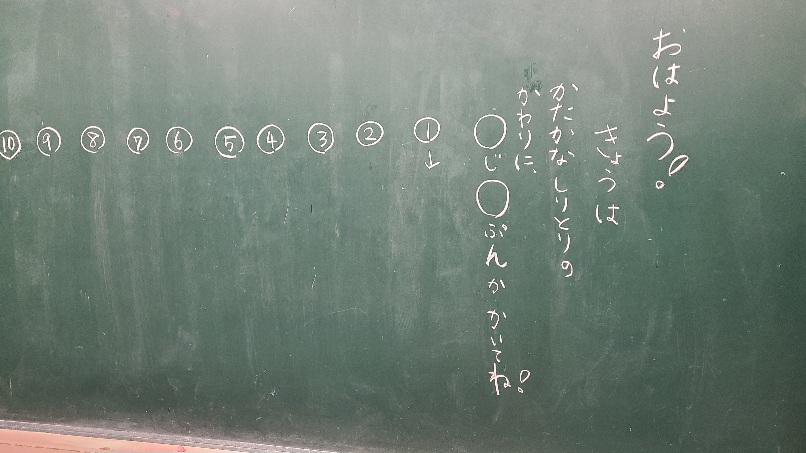 おはよう!
きょうは
かたかなしりとりの
かわりに、
○じ○ぷんか かいてね!
①↓
②
③
④
⑤
⑥
⑦
⑧
⑨
⑩